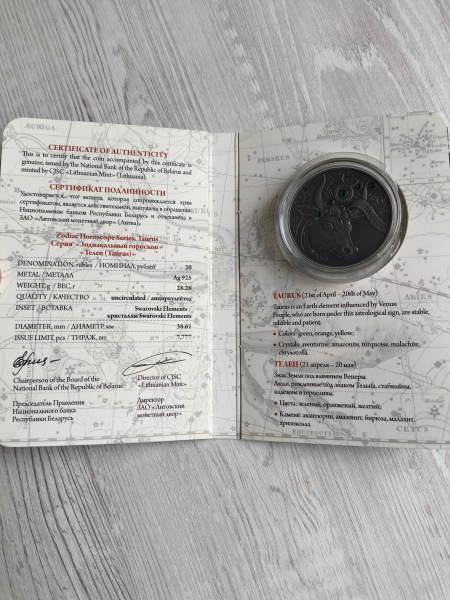 AURIGA
CERTIFICATE OF AUTHENTICITY
This is to certify that the coin accompanied by this certificate is
genuine, issued by the National Bank of the Republic of Belarus and
minted by CJSC «Lithuanian Mint» (Lithuania).
СЕРТИФИКАТ ПОДЛИННОСТИ
Удостоверяется, что монета, которая сопровождается этим
сертификатом, является действительной, выпущена в обращение
Национальным банком Республики Беларусь и отчеканена в
ЗАО «Литовский монетный двор» (Литва).
Zodiac Horoscope Series. Taurus
Серия «Зодиакальный гороскоп»
«Телец (Taurus)»
DENOMINATION, rubles / НОМИНАЛ, рублей 20
METAL / МЕТАЛЛ Ag 925
WEIGHT, g / ВЕС, г 28.28
QUALITY / КАЧЕСТВО uncirculated / анциркулейтед
INSET / ВСТАВКА Swarovski Elements /
кристаллы Swarovski Elements
DIAMETER, mm / ДИАМЕТР, мм 38.61
ISSUE LIMIT, pcs / ТИРАЖ, шт. 7,777
Chairperson of the Board of the
National Bank of the Republic of Belarus
Director of CJSC
«Lithuanian Mint»
Председатель Правления
Национального банка
Республики Беларусь
Директор
ЗАО «Литовский
монетный двор»
PERSEUS
TAURUS (21st of April – 20th of May)
Taurus is an Earth element influenced by Venus.
People, who are born under this astrological sign, are stable,
reliable and patient.
• Colors: green, orange, yellow;
• Crystals: aventurine, amazonite, turquoise, malachite,
chrysocolla.
ТЕЛЕЦ (21 апреля – 20 мая)
Знак Земли под влиянием Венеры.
Люди, рожденные под знаком Тельца, стабильны,
надежны и терпеливы.
• Цвета: зеленый, оранжевый, желтый;
• Камни: авантюрин, амазонит, бирюза, малахит,
хризоколла.
CETUS
EQUINOCTIAL